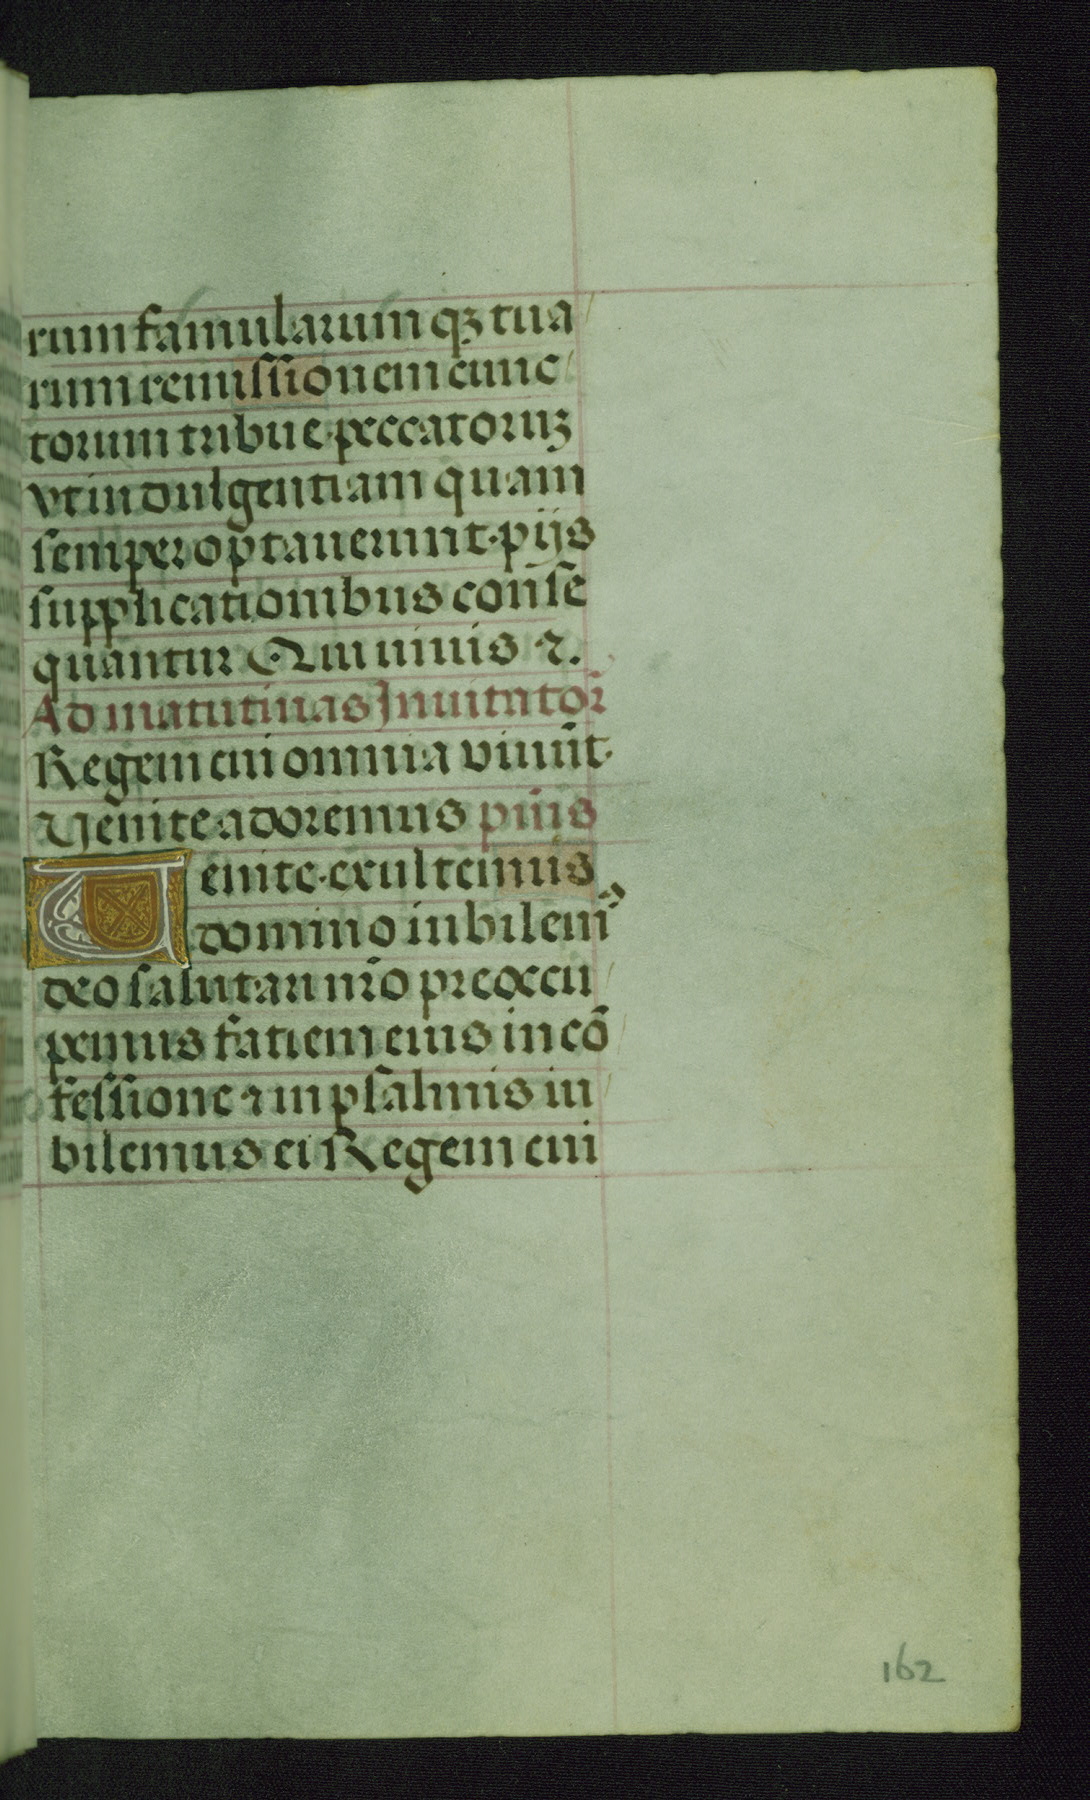 rum famularum qꝫ tua
rum remissionem cunc
torum tribue peccatoruꝫ
vt indulgentiam quam
semper optauerunt· pijs
supplicationibus conse
quantur Qui uiuis ⁊.
Ad matutinas Inuitator̄
Regem cui omnia viuūt·
Venite adoremus p̄us
Venite· exultemus
domino iubilem⁹
deo salutari nr̄o preoccu
pemus fatiem eius in cō
fessione ⁊ in psalmis iu
bilemus ei Regem cui
162